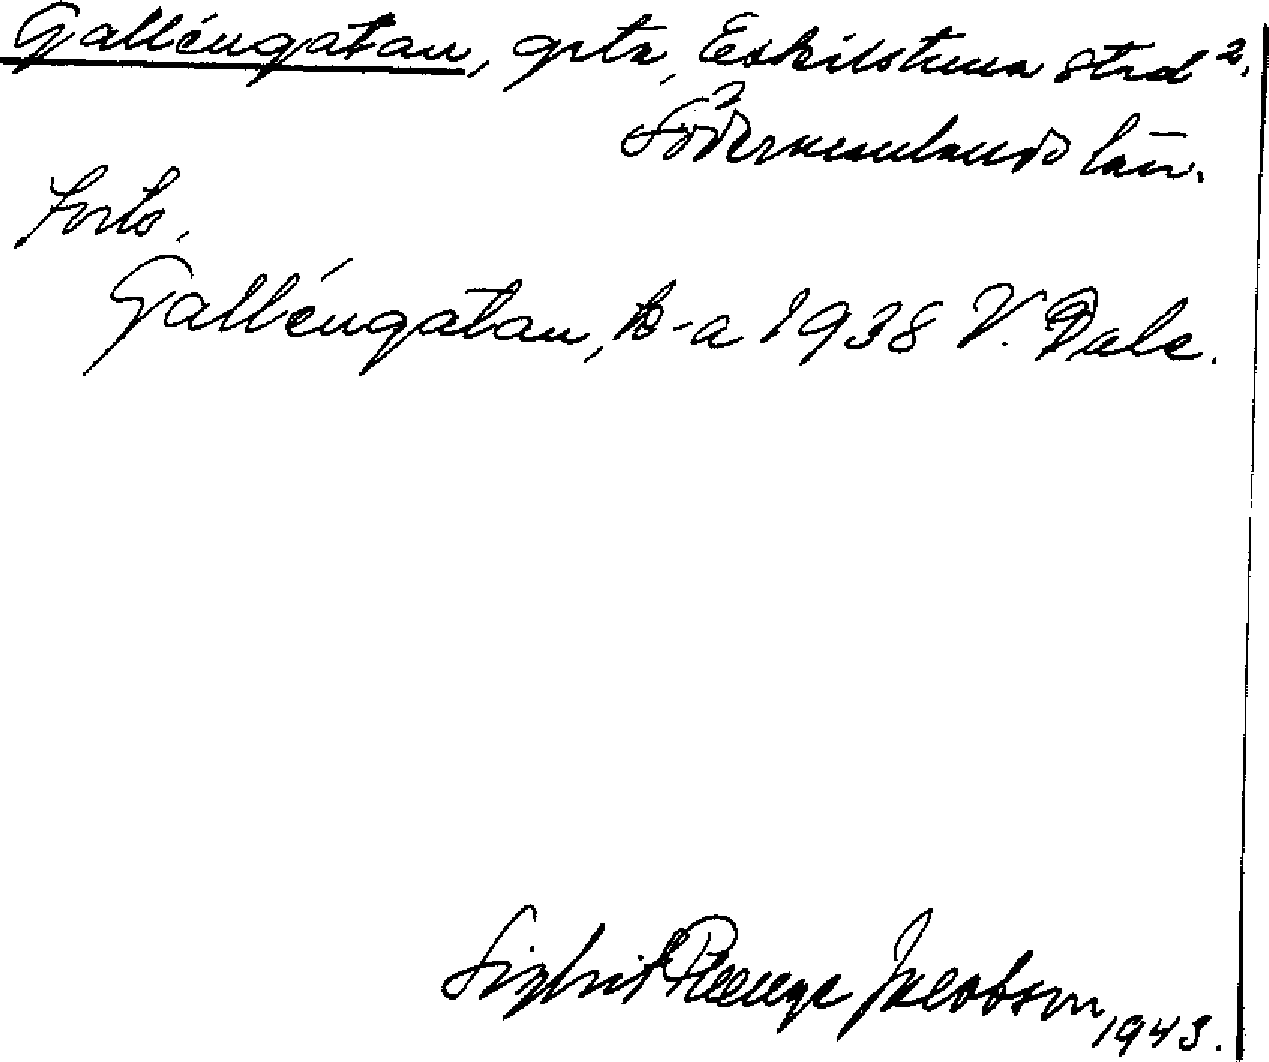 Galléngatan, gata, Eskilstuna stad 2.
Södermanlands län.
Forts.
Galléngatan, k-a 1938 V. Dale.
Sigbrit Plænge Jacobson, 1943.